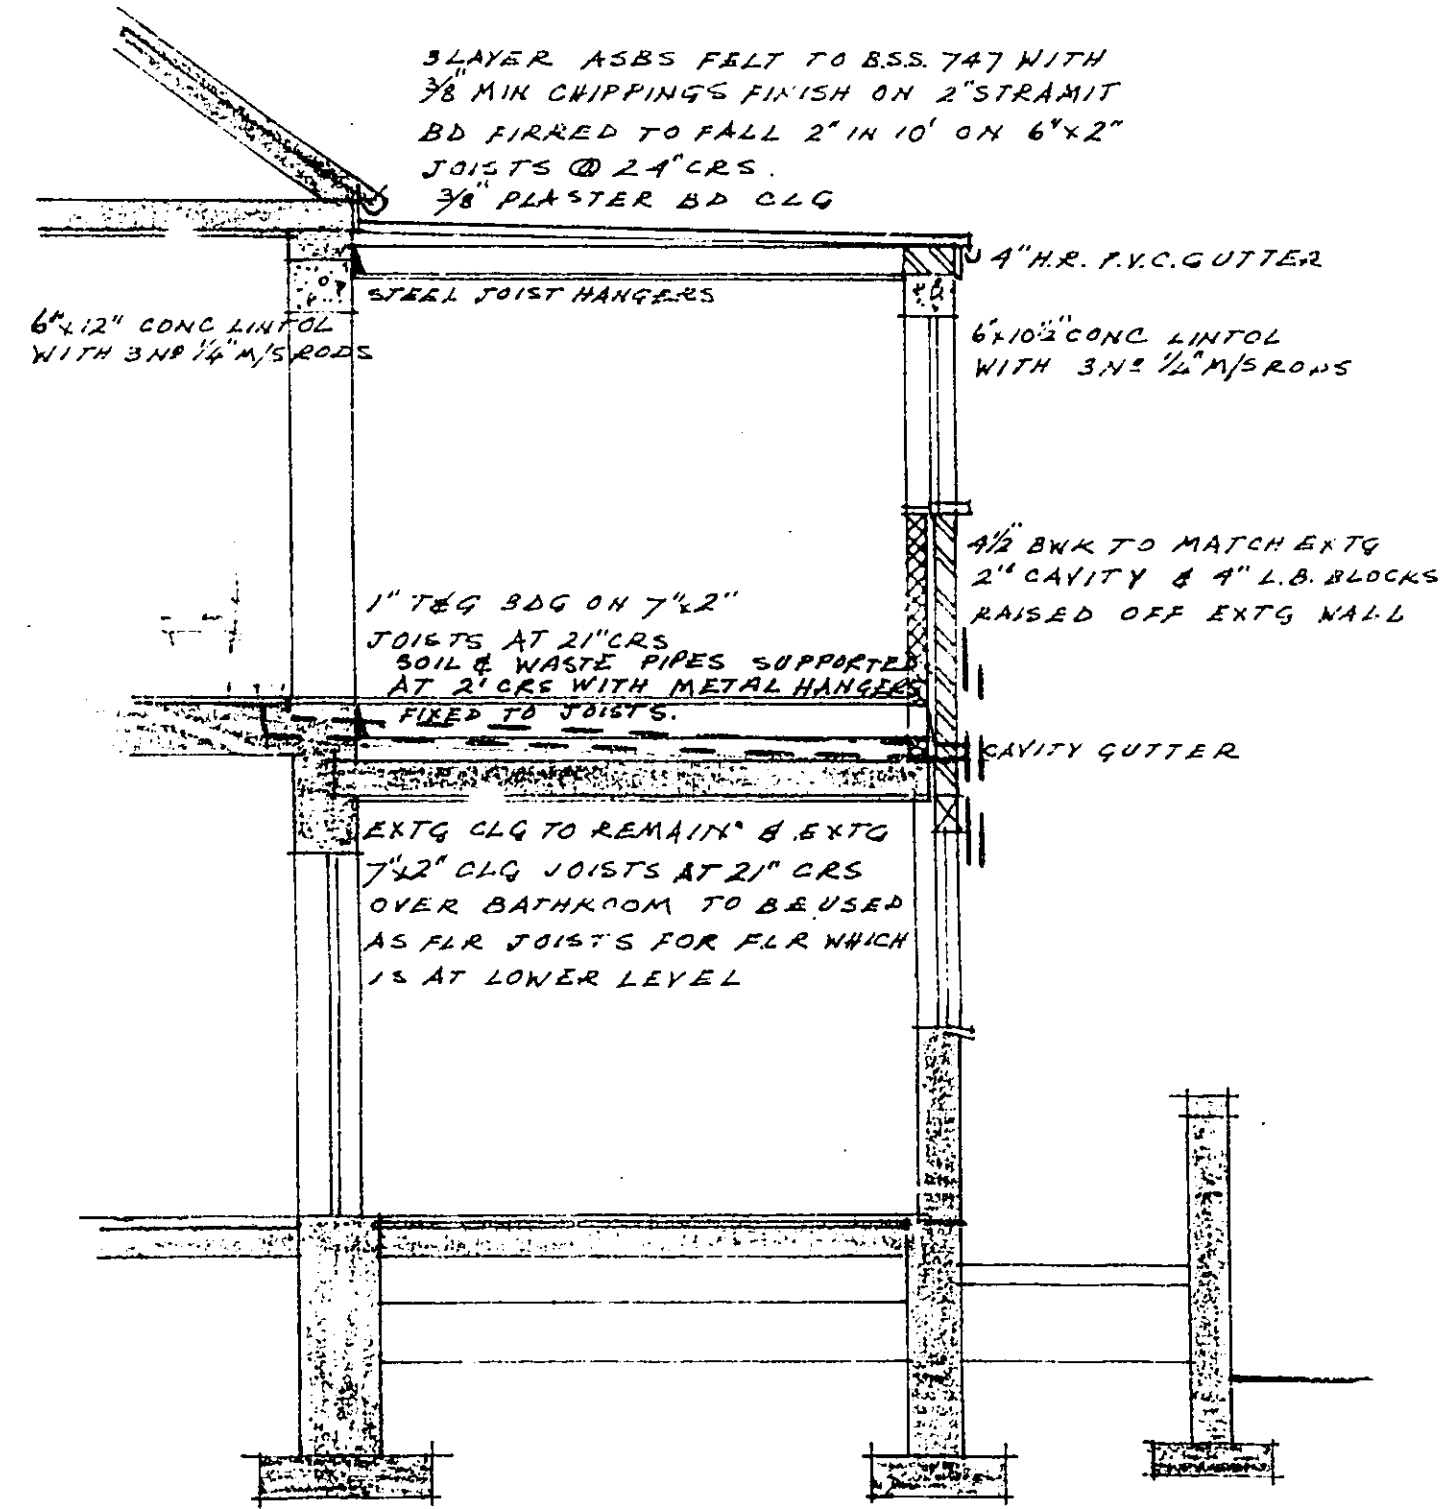 3 LAYER ASBS FELT TO B.S.S. 747 WITH
3/8" MIN CHIPPINGS FINISH ON 2" STRAMIT
BD FIRRED TO FALL 2" IN 10' ON 6"x2"
JOISTS @ 24" CRS.
3/8" PLASTER BD CLG
4" H.R. P.V.C. GUTTER
STEEL JOIST HANGERS
6"x12" CONC LINTOL
WITH 3 Nº 1/4" M/S RODS
6"x10½" CONC LINTOL
WITH 3 Nº 1/4" M/S RODS
4½" BWK TO MATCH EXTG
2" CAVITY & 4" L.B. BLOCKS
RAISED OFF EXTG WALL
1" T&G BDG ON 7"x2"
JOISTS AT 21" CRS
SOIL & WASTE PIPES SUPPORTED
AT 2' CRS WITH METAL HANGERS
FIXED TO JOISTS.
CAVITY GUTTER
EXTG CLG TO REMAIN & EXTG
7"x2" CLG JOISTS AT 21" CRS
OVER BATHROOM TO BE USED
AS FLR JOISTS FOR FLR WHICH
IS AT LOWER LEVEL